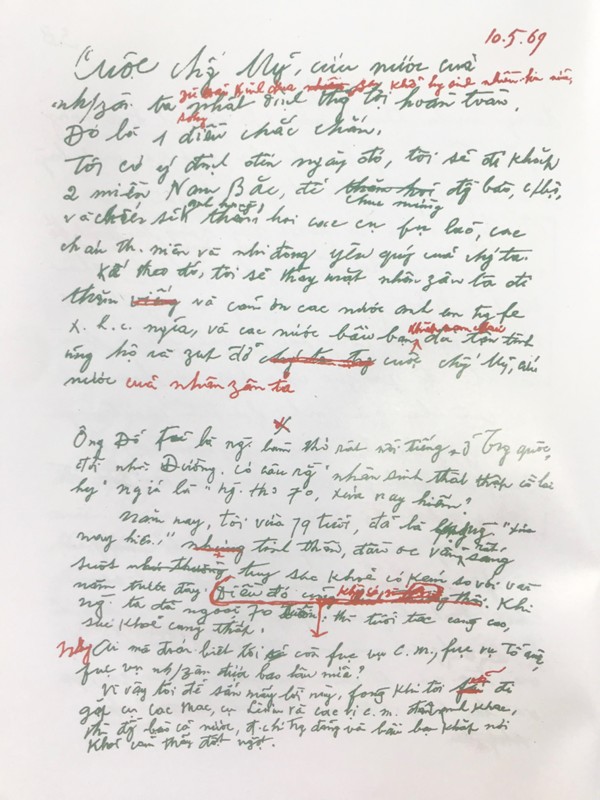 10.5.69
Cuộc chố́ Mỹ, cứu nước của
nh/zân ta dù fải kinh qua khổ, hy sinh nhiều hơn nữa,
song nhất định thg lợi hoàn toàn.
Đó là 1 điều chắc chắn.
Tôi có ý định đến ngày đó, tôi sẽ đi khắp
2 miền Nam Bắc, để chúc mừng đg bào, c/bộ,
và chiến sĩ anh hùng, thăm hỏi các cụ fụ lão, các
cháu th. niên và nhi đồng yêu quý của chg ta.
Kế theo đó, tôi sẽ thay mặt nhân zân ta đi
thăm và cảm ơn các nước anh em tg fe
x. h. c. nghĩa, và các nước bầu bạn khắp năm châu đã tận tình
ủng hộ và júp đỡ cuộc chố́ Mỹ, cứu
nước của nhân zân ta
Ông Đỗ Fủ là ng. làm thơ rất nổi tiếng ở Trg quốc,
đời nhà Đường. Có câu rằng "nhân sinh thất thập cổ lai
hy" nghĩa là "ng. thọ 70, xưa nay hiếm".
Năm nay, tôi vừa 79 tuổi, đã là "xưa
nay hiếm" tinh thần, đầu óc vẫn rất sáng
suốt tuy sức khoẻ có kém so với vài
năm trước đây. Điều đó Khi
ng. ta đã ngoài 70 thì tuổi tác càng cao,
sức khoẻ càng thấp.
Nhg Ai mà đoán biết tôi còn fục vụ C. m., fục vụ Tổ quốc,
fục vụ nh/zân được bao lâu nữa?
Vì vậy tôi để sẵn mấy lời này, fòng khi tôi sẽ đi
gặp cụ Các Mác, cụ Lênin và các vị c. m. đàn anh khác,
thì đg bào cả nước, đ. chí trg đảng và bầu bạn khắp nơi
khỏi cảm thấy đột ngột.